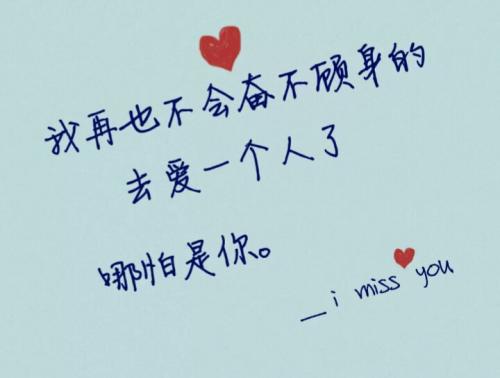 我再也不会奋不顾身的
去爱一个人了
哪怕是你。
_i miss you